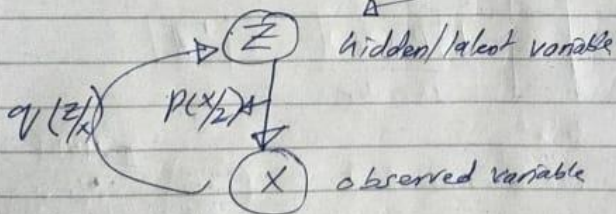 Z hidden/latent variable
q(z/x) P(X/Z)
X observed variable